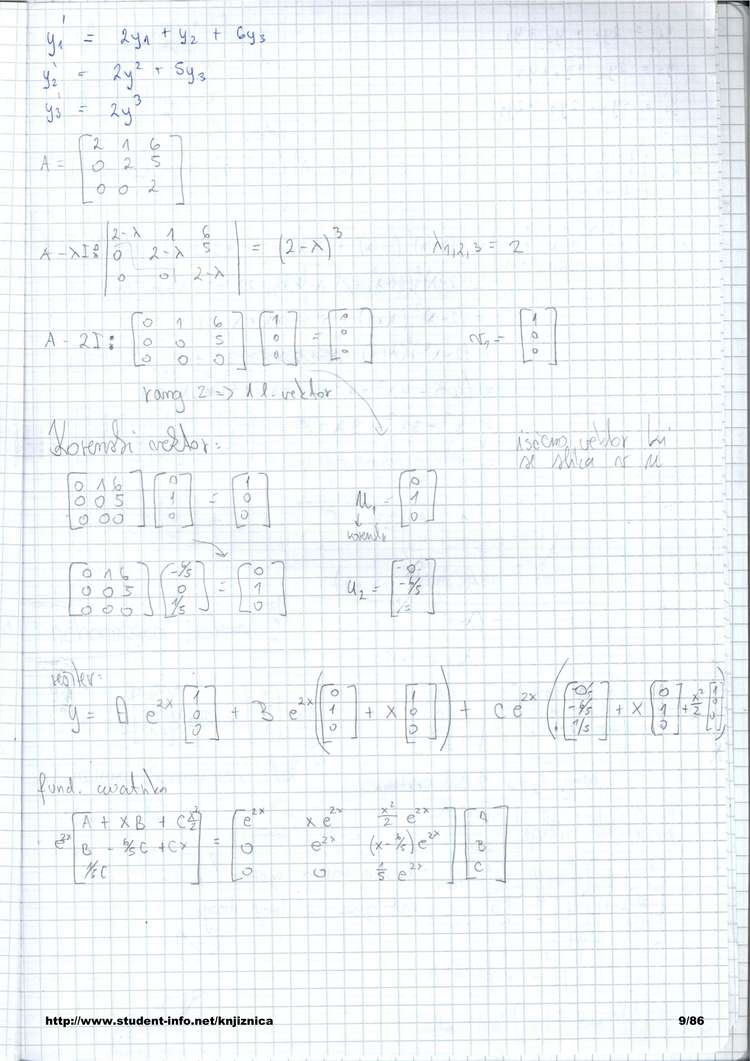 y₁' = 2y₁ + y₂ + 6y₃
y₂' = 2y² + 5y₃
y₃' = 2y³
A = [2 1 6; 0 2 5; 0 0 2]
A - λI: |2-λ 1 6; 0 2-λ 5; 0 0 2-λ| = (2-λ)³ λ₁,₂,₃ = 2
A - 2I: [0 1 6; 0 0 5; 0 0 0] [1; 0; 0] = [0; 0; 0] v₁ = [1; 0; 0]
rang 2 => 1 l. vektor
Korenski vektor: iščemo vektor ki
se slika v
[0 1 6; 0 0 5; 0 0 0] [0; 1; 0] = [1; 0; 0] u₁ = [0; 1; 0]
[0 1 6; 0 0 5; 0 0 0] [-6/5; 0; 1/5] = [0; 1; 0] u₂ = [0; -6/5; ]
y = A e^2x [1; 0; 0] + B e^2x ([0; 1; 0] + x [1; 0; 0]) + C e^2x ([0; -6/5; 1/5] + x [0; 1; 0] + x²/2 [1; 0; 0])
fund.
e^2x [A + xB + C x²/2; B - 6/5C + Cx; 1/5C] = [e^2x xe^2x x²/2 e^2x; 0 e^2x (x-6/5)e^2x; 0 0 1/5 e^2x] [A; B; C]
http://www.student-info.net/knjiznica 9/86